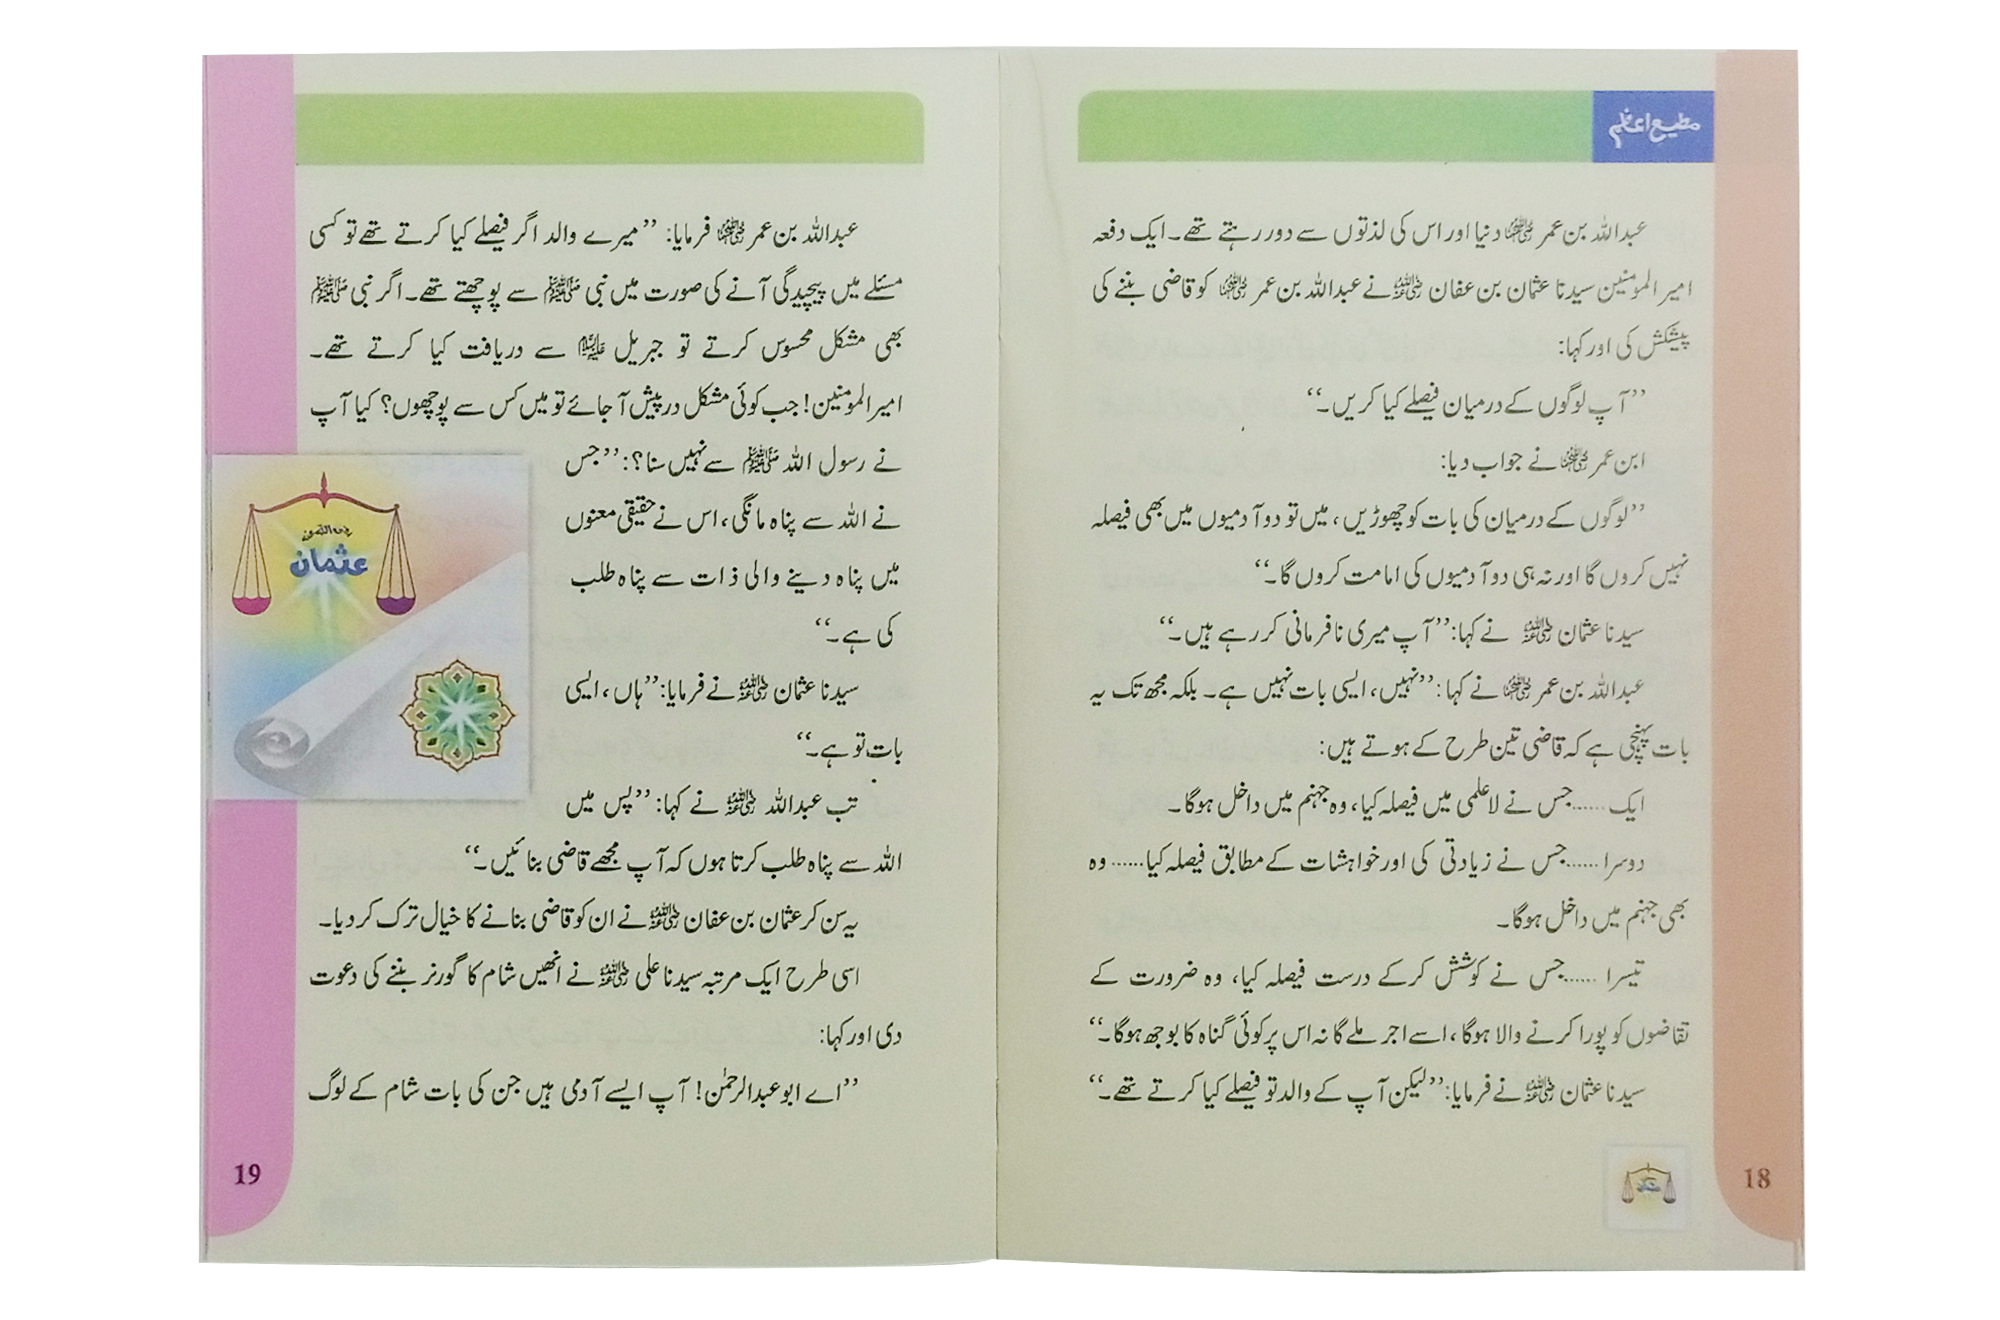 مطیع اعظم
عبداللہ بن عمر رضی اللہ عنہما دنیا اور اس کی لذتوں سے دور رہتے تھے۔ ایک دفعہ
امیر المومنین سیدنا عثمان بن عفان رضی اللہ عنہ نے عبداللہ بن عمر رضی اللہ عنہما کو قاضی بننے کی
پیشکش کی اور کہا:
’’آپ لوگوں کے درمیان فیصلے کیا کریں۔‘‘
ابن عمر رضی اللہ عنہما نے جواب دیا:
’’لوگوں کے درمیان کی بات کو چھوڑیں، میں تو دو آدمیوں میں بھی فیصلہ
نہیں کروں گا اور نہ ہی دو آدمیوں کی امامت کروں گا۔‘‘
سیدنا عثمان رضی اللہ عنہ نے کہا: ’’آپ میری نافرمانی کر رہے ہیں۔‘‘
عبداللہ بن عمر رضی اللہ عنہما نے کہا: ’’نہیں، ایسی بات نہیں ہے۔ بلکہ مجھ تک یہ
بات پہنچی ہے کہ قاضی تین طرح کے ہوتے ہیں:
ایک ......جس نے لاعلمی میں فیصلہ کیا، وہ جہنم میں داخل ہوگا۔
دوسرا ......جس نے زیادتی کی اور خواہشات کے مطابق فیصلہ کیا...... وہ
بھی جہنم میں داخل ہوگا۔
تیسرا ......جس نے کوشش کرکے درست فیصلہ کیا، وہ ضرورت کے
تقاضوں کو پورا کرنے والا ہوگا، اسے اجر ملے گا نہ اس پر کوئی گناہ کا بوجھ ہوگا۔‘‘
سیدنا عثمان رضی اللہ عنہ نے فرمایا: ’’لیکن آپ کے والد تو فیصلے کیا کرتے تھے۔‘‘
18
عبداللہ بن عمر رضی اللہ عنہما فرمایا: ’’میرے والد اگر فیصلے کیا کرتے تھے تو کسی
مسئلے میں پیچیدگی آنے کی صورت میں نبی ﷺ سے پوچھتے تھے۔ اگر نبی ﷺ
بھی مشکل محسوس کرتے تو جبریل علیہ السلام سے دریافت کیا کرتے تھے۔
امیر المومنین! جب کوئی مشکل درپیش آ جائے تو میں کس سے پوچھوں؟ کیا آپ
نے رسول اللہ ﷺ سے نہیں سنا؟: ’’جس
نے اللہ سے پناہ مانگی، اس نے حقیقی معنوں
میں پناہ دینے والی ذات سے پناہ طلب
کی ہے۔‘‘
سیدنا عثمان رضی اللہ عنہ نے فرمایا: ’’ہاں، ایسی
بات تو ہے۔‘‘
تب عبداللہ رضی اللہ عنہ نے کہا: ’’پس میں
اللہ سے پناہ طلب کرتا ہوں کہ آپ مجھے قاضی بنائیں۔‘‘
یہ سن کر عثمان بن عفان رضی اللہ عنہ نے ان کو قاضی بنانے کا خیال ترک کر دیا۔
اسی طرح ایک مرتبہ سیدنا علی رضی اللہ عنہ نے انھیں شام کا گورنر بننے کی دعوت
دی اور کہا:
’’اے ابو عبدالرحمٰن! آپ ایسے آدمی ہیں جن کی بات شام کے لوگ
رضی اللہ عنہ
عثمان
19